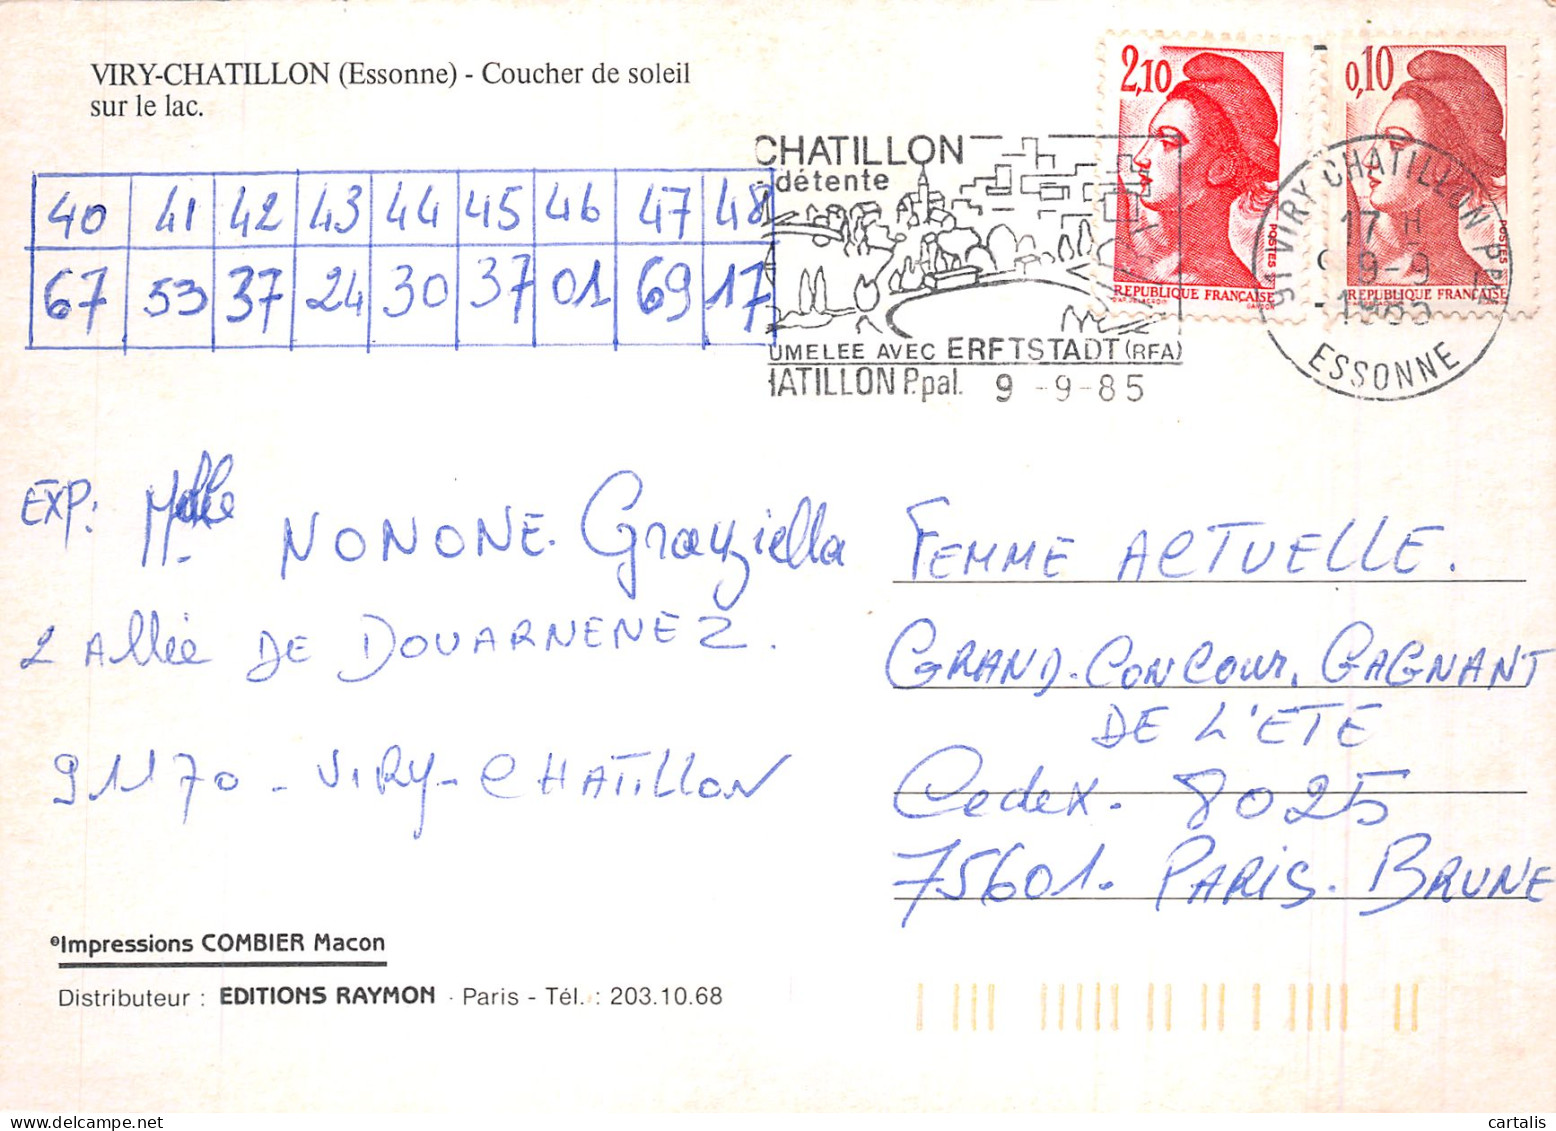 VIRY-CHATILLON (Essonne) - Coucher de soleil
sur le lac.
2,10
POSTES
RÉPUBLIQUE FRANÇAISE
0,10
POSTES
RÉPUBLIQUE FRANÇAISE
CHATILLON
détente
UMELEE AVEC ERFTSTADT (RFA)
HATILLON P.pal. 9 -9-85
91 VIRY CHATILLON PPAL
17 H
9-9
1985
ESSONNE
40 41 42 43 44 45 46 47 48
67 53 37 24 30 37 01 69 17
EXP: Melle NONONE. Graziella
2 Allée DE DOUARNENEZ.
91170 - VIRY-CHATILLON
FEMME ACTUELLE.
GRAND-CONCOUR. GAGNANT
DE L'ETE
Cedex. 8025
75601. PARIS. BRUNE
Impressions COMBIER Macon
Distributeur : EDITIONS RAYMON - Paris - Tél. : 203.10.68
cartalis